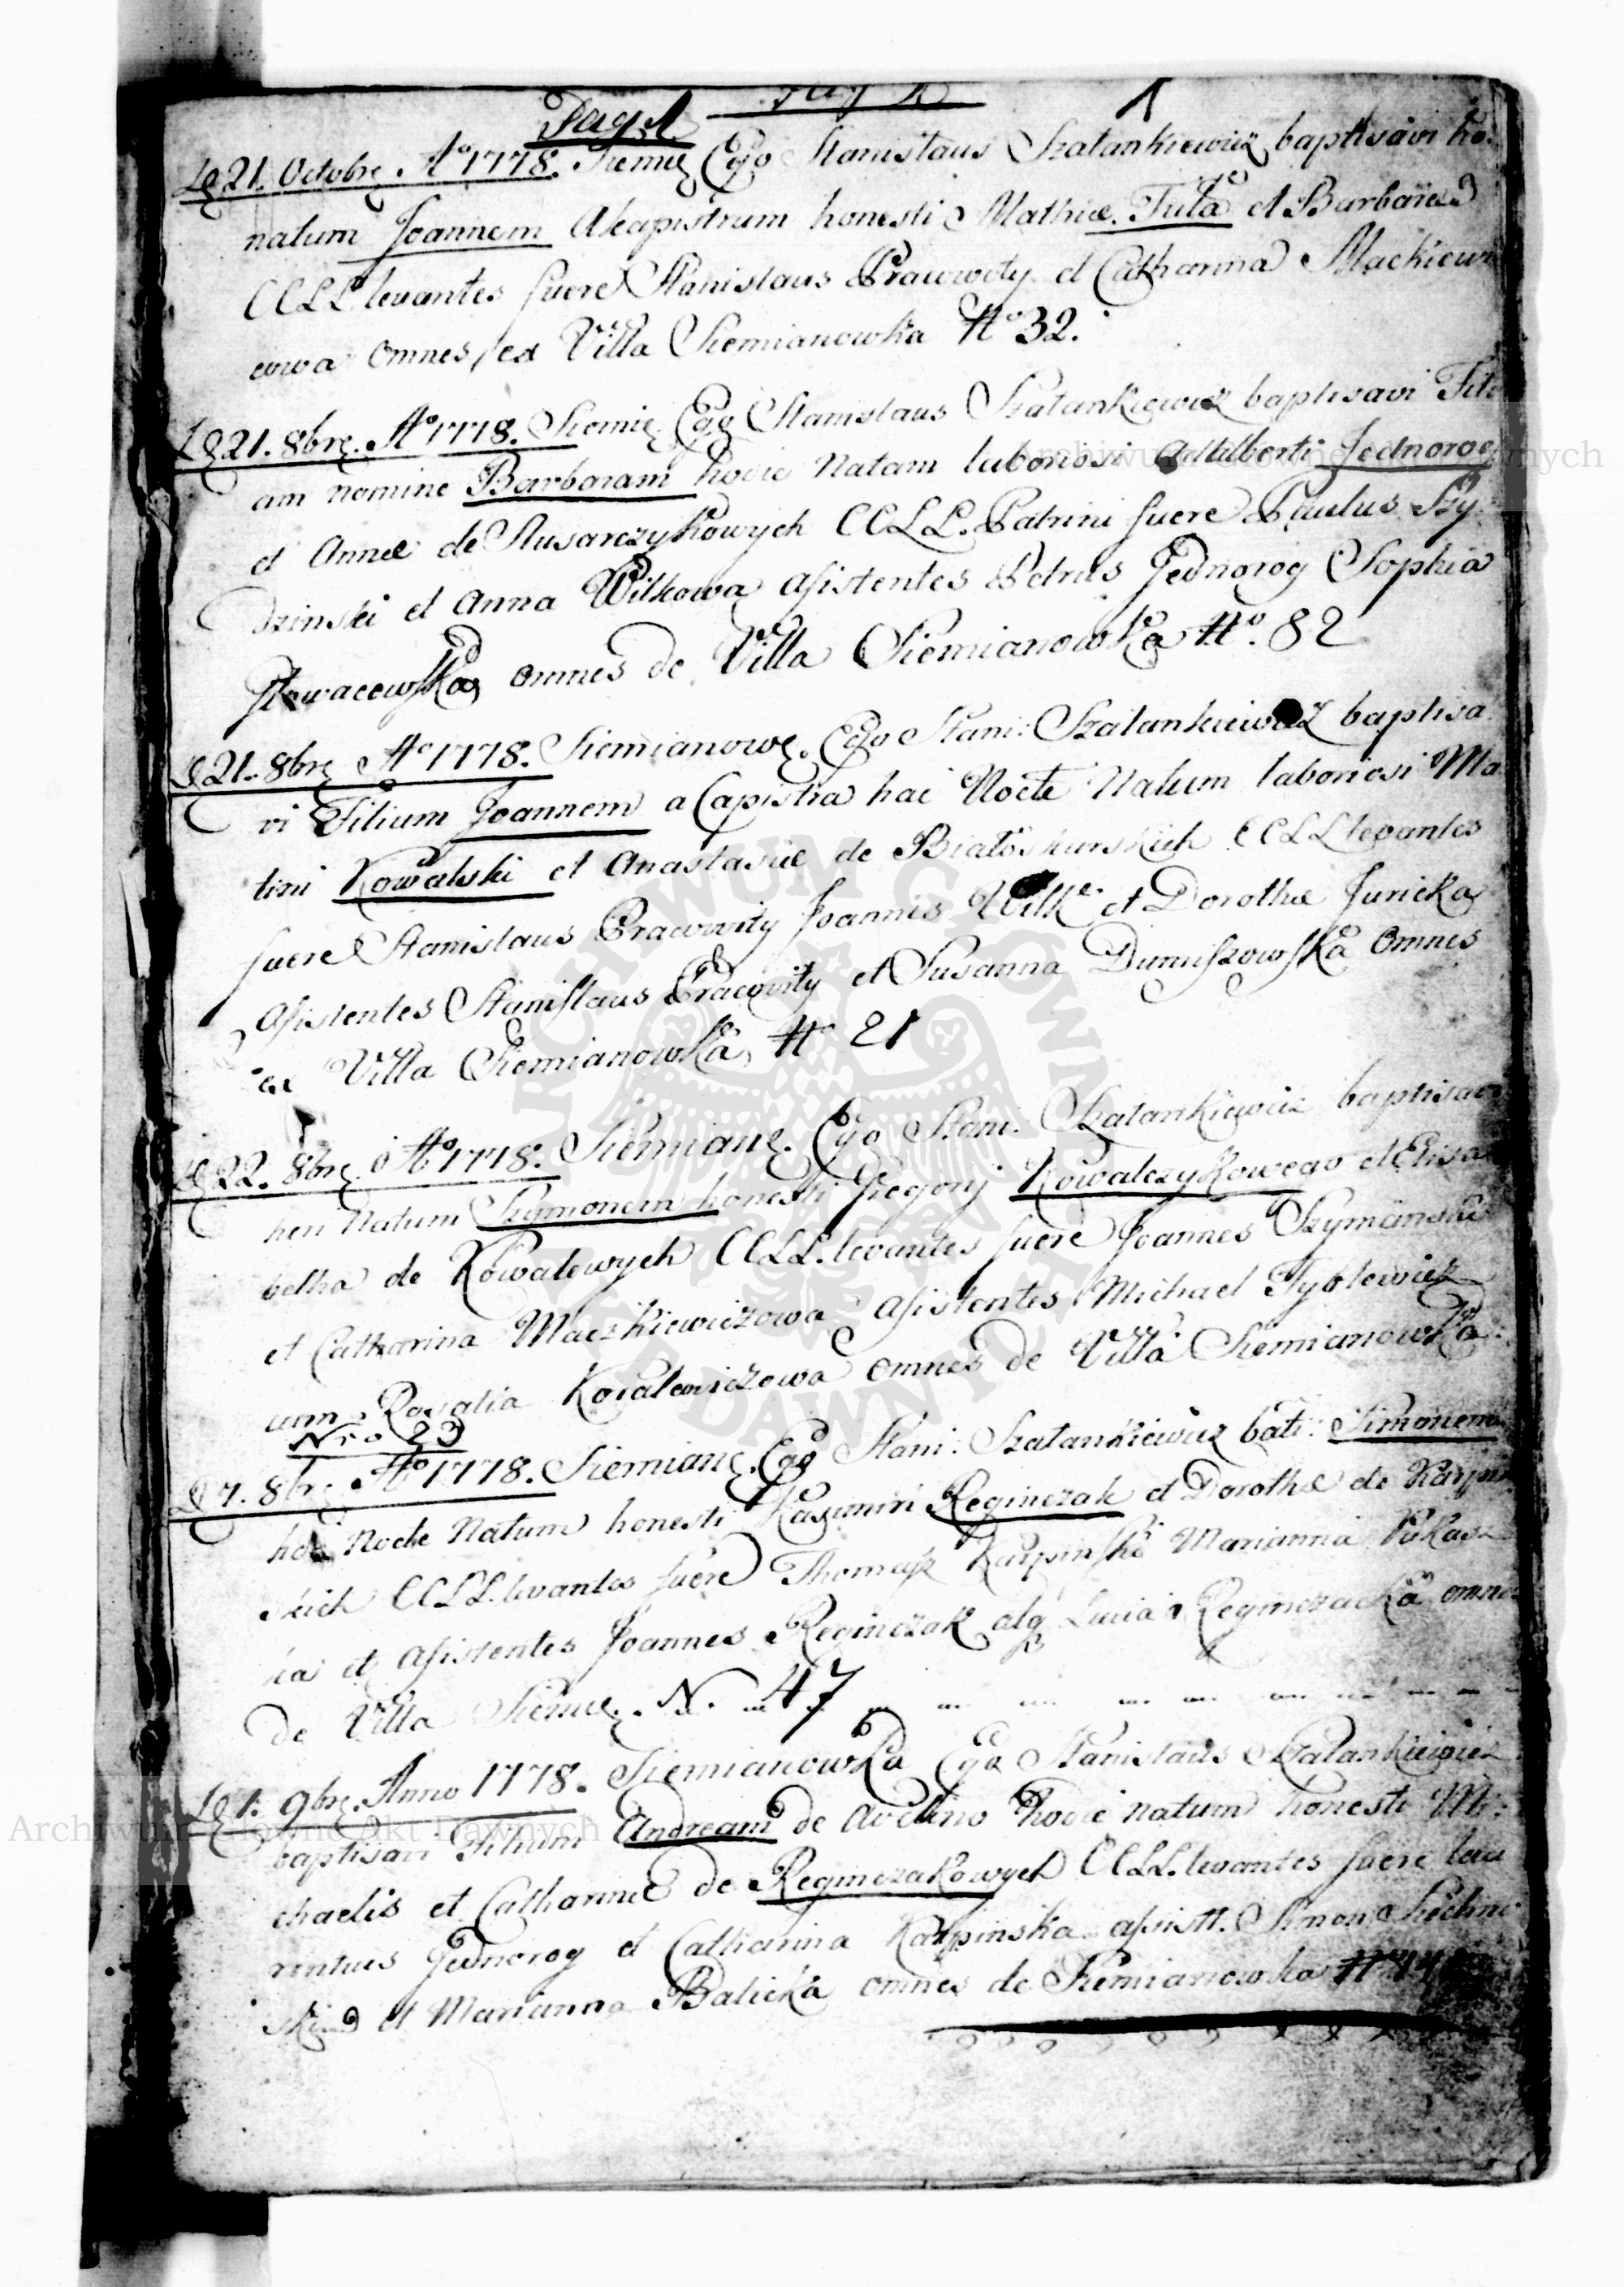 Pag 1
1
De 21. Octobre A° 1778. Siemie Ego Stanislaus Szatankiewicz baptisavi ho:
natum Joannem Acapistrum honesti Mathiæ Tula et Barbaræ
CCLL levantes fuere Stanislaus Pracowity et Catharina Mackiewi
czowa omnes ex Villa Siemianowka N° 32.
De 21. 8bre. A° 1778. Siemie Ego Stanislaus Szatankiewicz baptisavi Fili
am nomine Barbaram hodie Natam laboriosi Adalberti Jednorog
et Annæ de Slusarczykowych CCLL. Patrini fuere Paulus Szy
dzinski et Anna Wilkowa Asistentes Petrus Jednorog Sophia
omnes de Villa Siemianowka N°. 82
De 21. 8bre A° 1778. Siemianowe. Ego Stani: Szatankiewicz baptisa
vi Filium Joannem a Capistra hac Nocte Natum laboriosi Ma
tini Kowalski et Anastasiæ de Białoskurskich CCLL levantes
fuere Stanislaus Pracowity Joannes Wilk et Dorothæ Juricka
Asistentes Stanislaus Pracowity et Susanna omnes
ex Villa Siemianowka N° 21
De 22. 8bre A° 1778. Siemiane. Ego Stani: Szatankiewicz baptisavi
heri Natum Szymonem honesti Gregorij Kowalczykowego et Elisa
betha de Kowalowych CCLL. levantes fuere Joannes Szymanski
et Catharina Maczkiewiczowa Asistentes Michael Tyblewicz
cum Rosalia Kowalewiczowa omnes de Villa Siemianowka
Nro 23
De 7. 8bre A° 1778. Siemiane. Ego Stani: Szatankiewicz bati: Simonem
hac Nocte Natum honesti Kasimiri Reginczak et Dorothæ de Karpin
skich CCLL levantes fuere Thomasz Karpinski Marianna Lukasz
ka et Asistentes Joannes Reginczak atq Lucia Reginczacka omnes
de Villa Sieme. N. 47
De 1. 9bre. Anno 1778. Siemianowka Ego Stanislaus Szatankiewicz
baptisavi Filium Andream de Avelino hodie natum honesti Mi:
chaelis et Catharinæ de Reginczakowych CCLL. levantes fuere Lau
rentius Jednorog et Catharina Karpinska asistt. Simon
et Marianna Balicka omnes de Siemianowka
Archiwum Główne Akt Dawnych
Archiwum Główne Akt Dawnych
ARCHIWUM GŁÓWNE AKT DAWNYCH